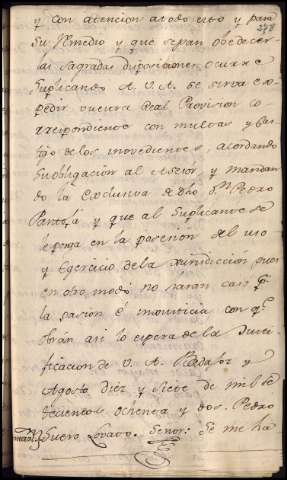 y con atencion a todo esto y para
278
su Remedio y que sepan obedecer
las sagradas disposiciones ocurre
Suplicando A. V. A. se sirva ex
pedir vuestra Real Provision co
rrespondiente con multas y
de los inovedientes, acordando
su obligacion al Asesor, y mandan
do la exclusiva de dho Dn. Pedro
y que al suplicante se
le ponga en la posesion del uso
y Egercicio de la Jurisdiccion pues
en otro modo no
la pasion è injusticia con qe.
obran asi lo espera de la Justi
ficacion de V. A. Badajoz y
Agosto Diez y siete de mil se
tecientos ochenta y dos. Pedro
Suero Lovato. Señor: Se me ha